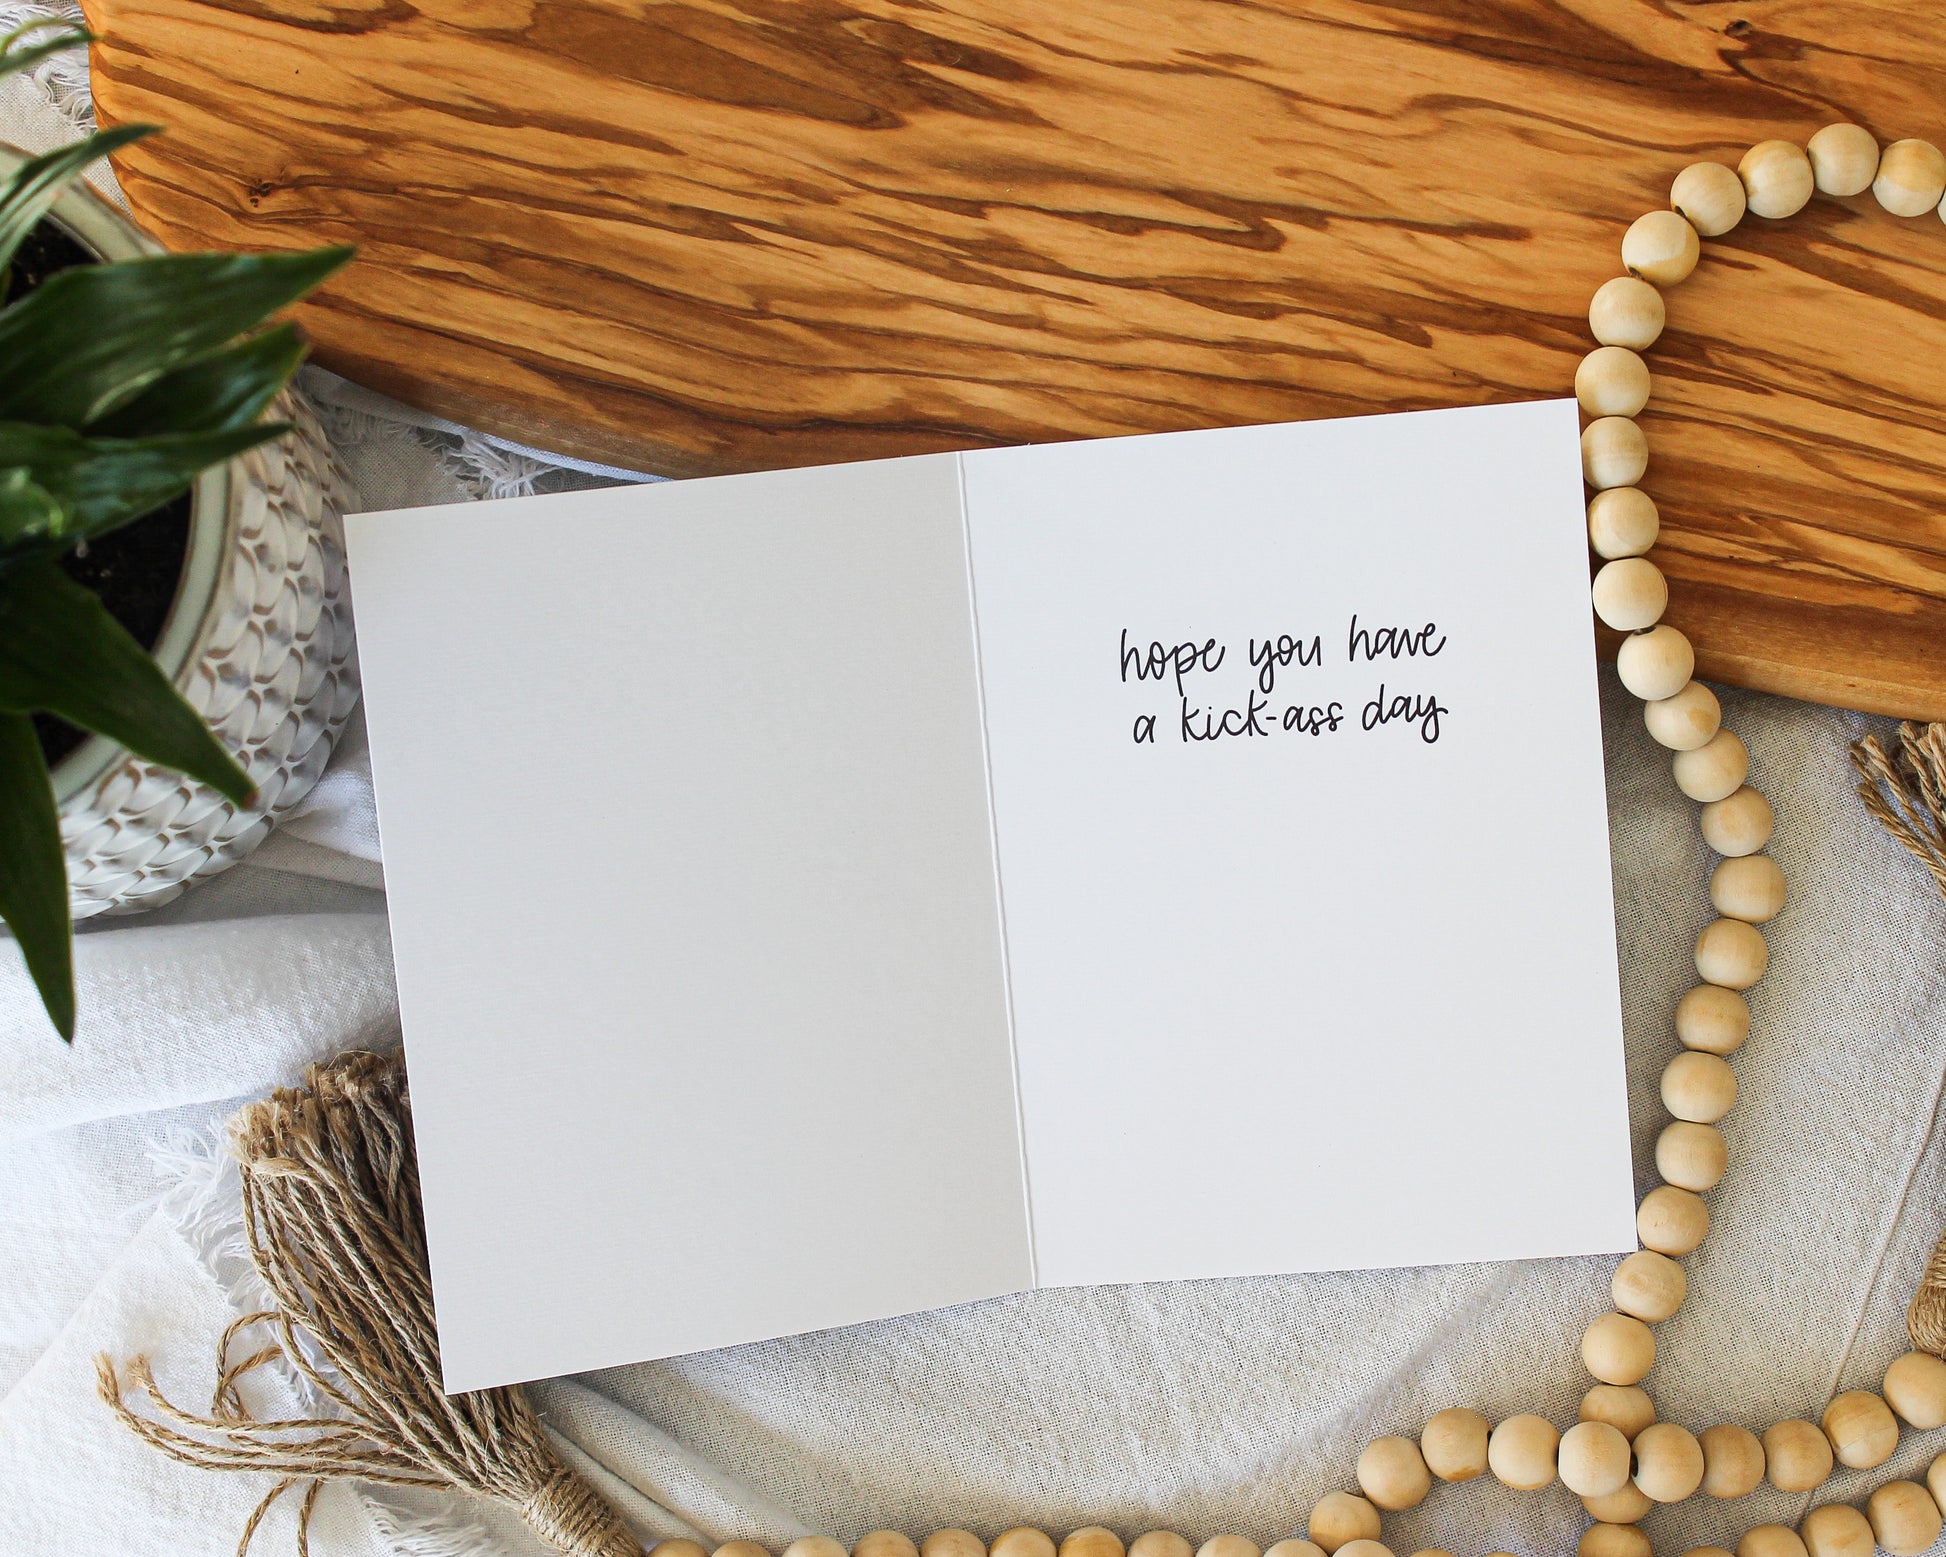 hope you have
a kick-ass day